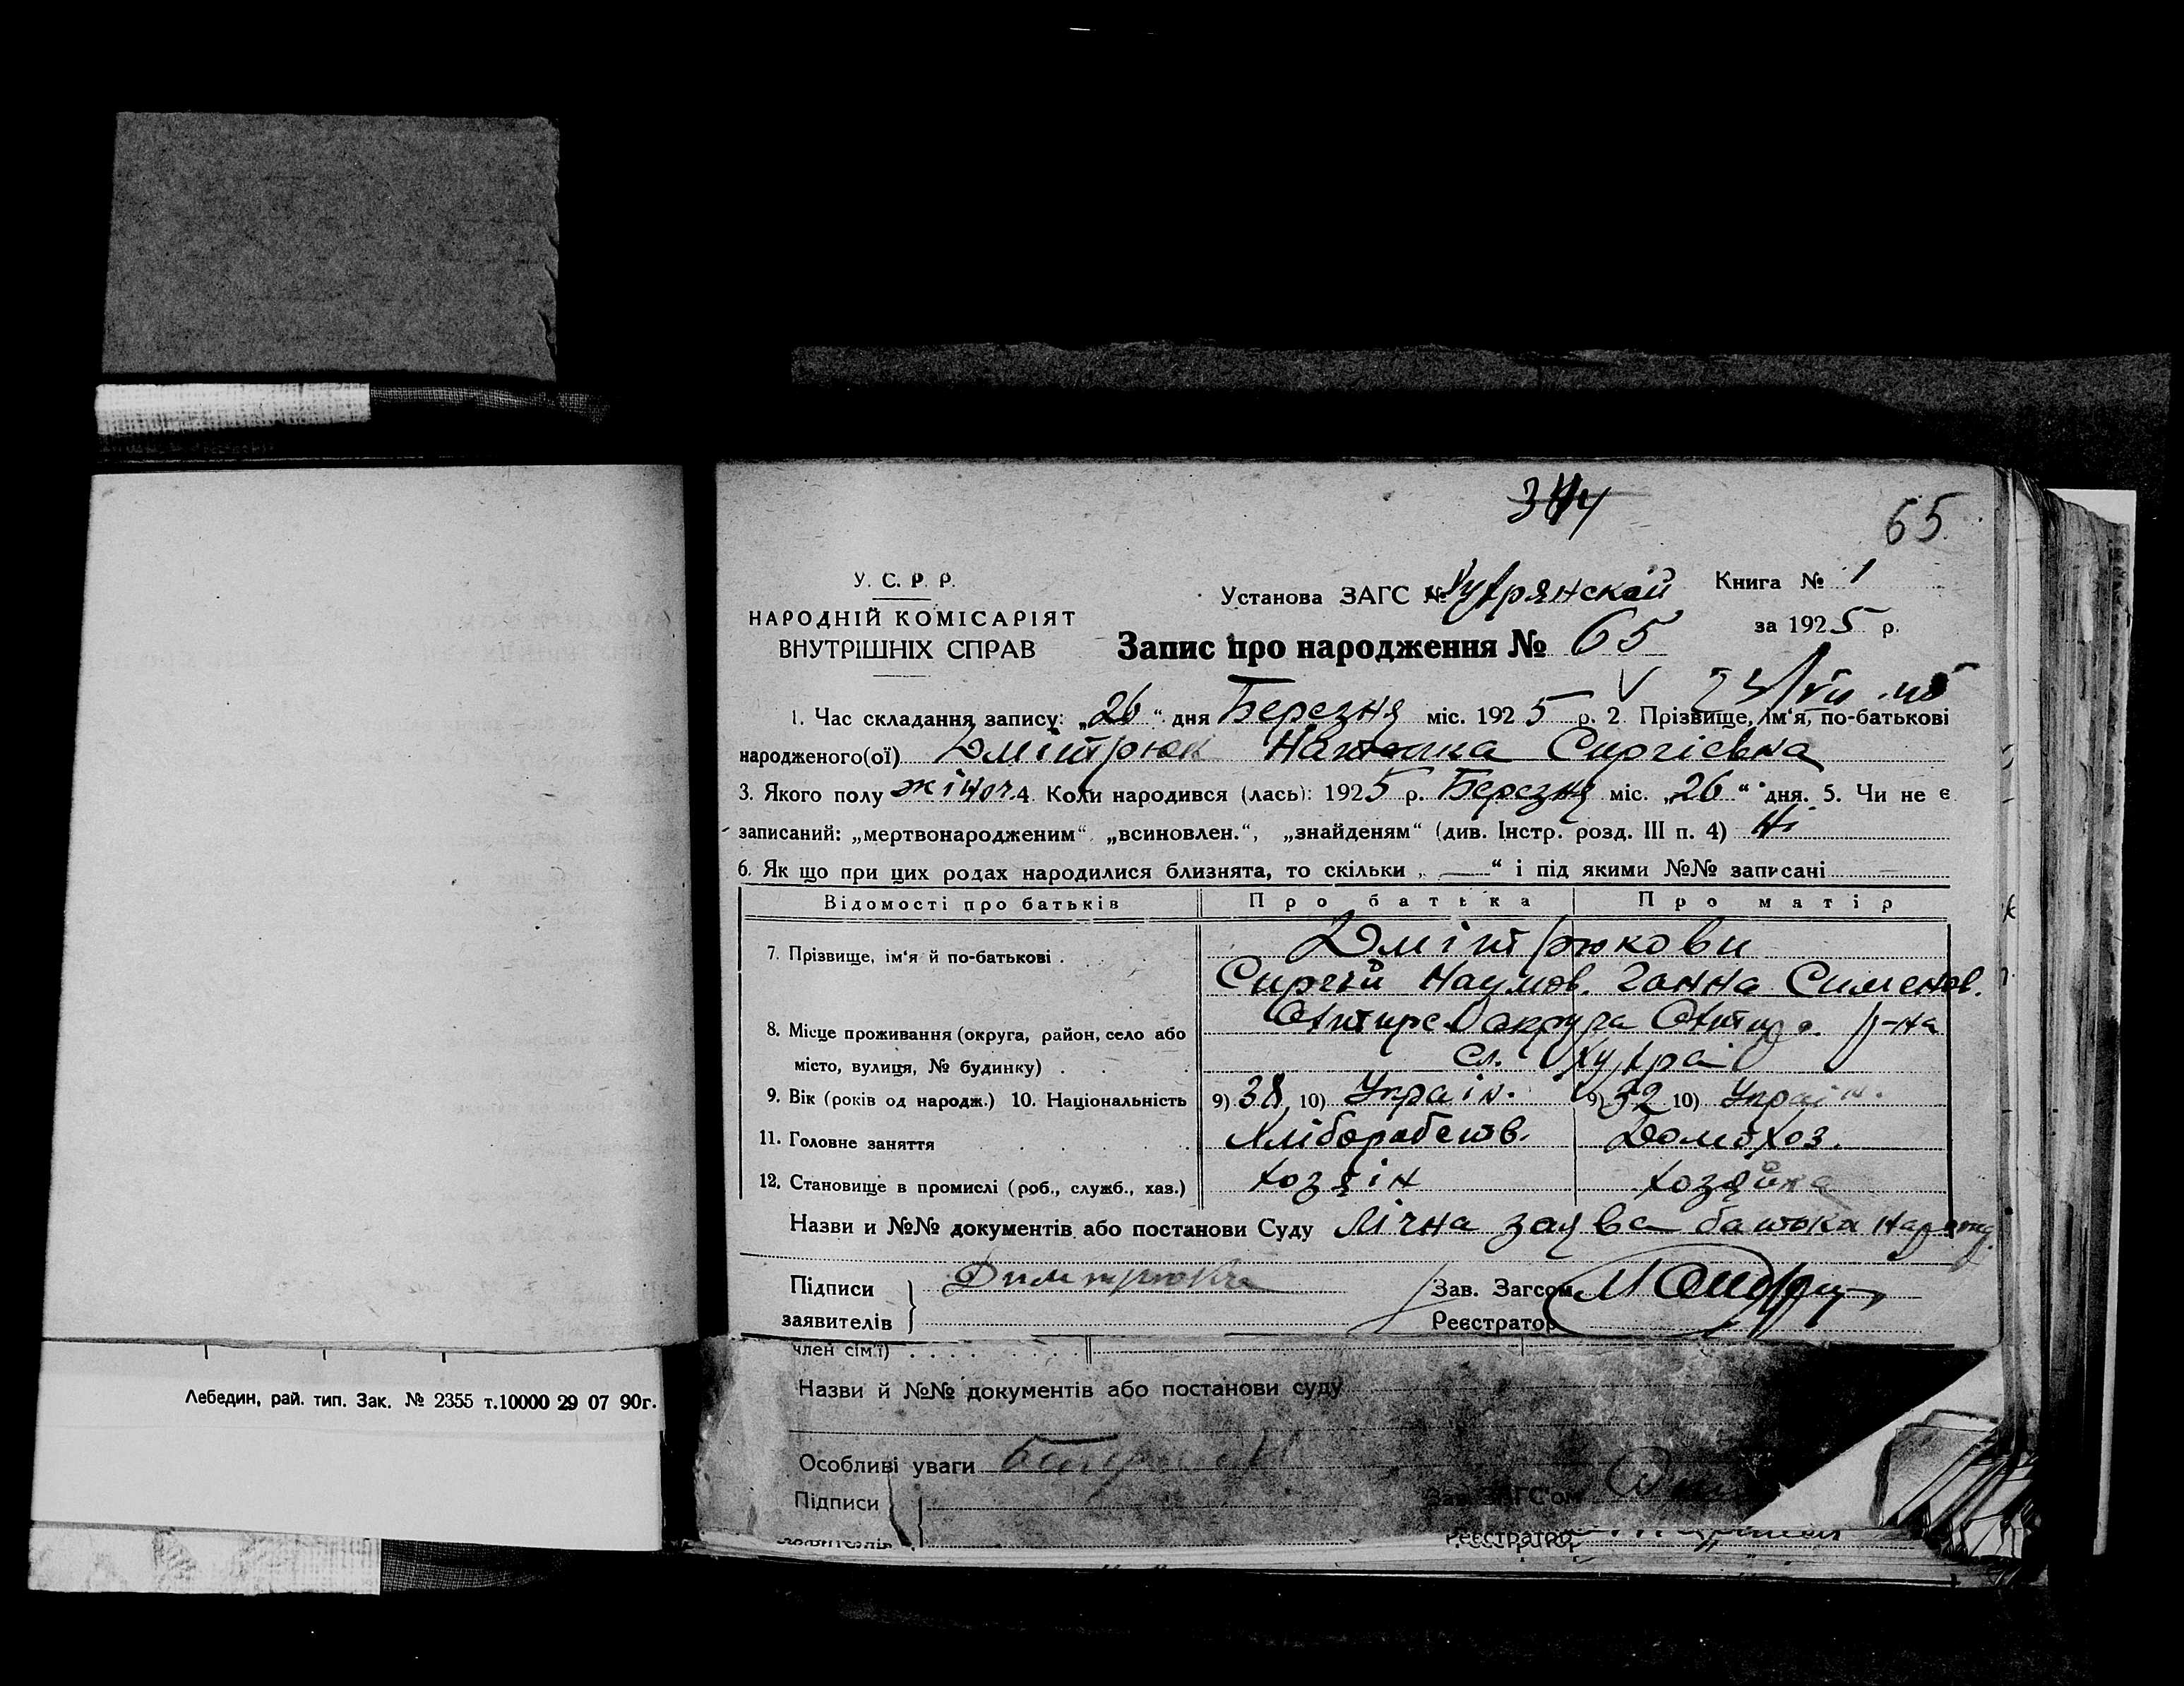 344
65
У. С. Р. Р.
НАРОДНІЙ КОМІСАРІЯТ
ВНУТРІШНІХ СПРАВ
Установа ЗАГС № Хухрянской
Книга № 1
за 1925 р.
Запис про народження № 65
1. Час складання запису: „26“ дня Березня міс. 1925 р. 2. Прізвище, ім'я, по-батькові
народженого(ої) Дмітрюк Наталка Сиргієвна
3. Якого полу жіноч. 4. Коли народився (лась): 1925 р. Березня міс. „26“ дня. 5. Чи не є
записаний: „мертвонародженим“ „всиновлен.“, „знайденям“ (див. Інстр. розд. III п. 4) Ні
6. Як що при цих родах народилися близнята, то скільки „—“ і під якими №№ записані —
Відомості про батьків Про батька Про матір
7. Прізвище, ім'я й по-батькові . Дмітрюкови
Сиргій Наумов. Ганна Сименов.
8. Місце проживання (округа, район, село або Охтирс. округа Охтир. р-на
місто, вулиця, № будинку) . сл. Хухра
9. Вік (років од народж.) 10. Національність 9) 38 10) Україн. 9) 32 10) Україн.
11. Головне заняття Хліборобств. Домохоз.
12. Становище в промислі (роб., служб., хаз.) хозяін хозяйка
Назви и №№ документів або постанови Суду Лічна заява батька
Підписи
заявителів
Зав. Загсом
Реєстратор
член сім'ї)
Назви й №№ документів або постанови суду
Особливі уваги
Підписи
Зав. ЗАГС'ом
заявителів
Реєстратор
Лебедин, рай. тип. Зак. № 2355 т.10000 29 07 90г.